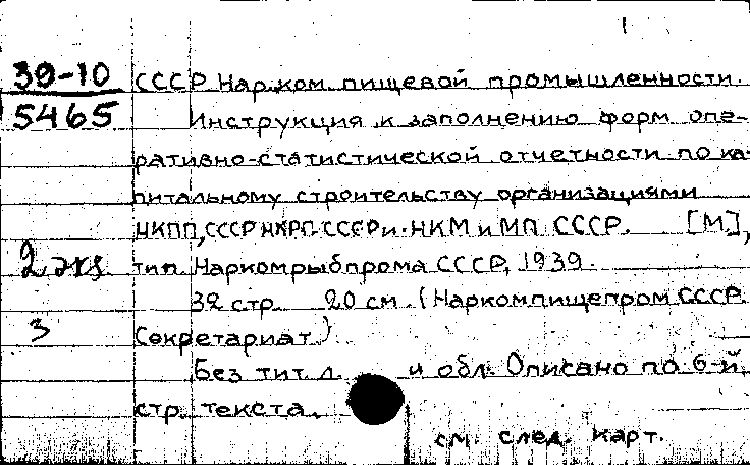 39-10
5465
СССР Нар.ком. пищевой промышленности.
Инструкция к заполнению форм опе-
ративно-статистической отчетности по ка-
питальному строительству организациями
НКПП, СССР НКРП СССР и НКМ и МП СССР. [М],
2 экз. тип. Наркомрыбпрома СССР, 1939.
32 стр. 20 см. (Наркомпищепром СССР.
3 Секретариат)
Без тит. л. и обл. Описано по 6-й
стр. текста.
см. след. карт.